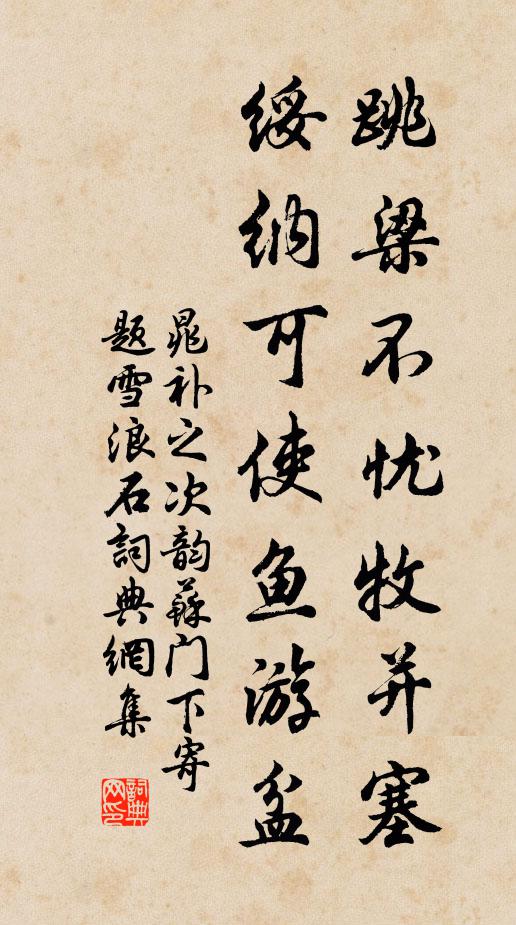 跳梁不忧牧并塞
绥纳可使鱼游盆
晁补之次韵苏门下寄
题雪浪石詞典網集
詞典网印